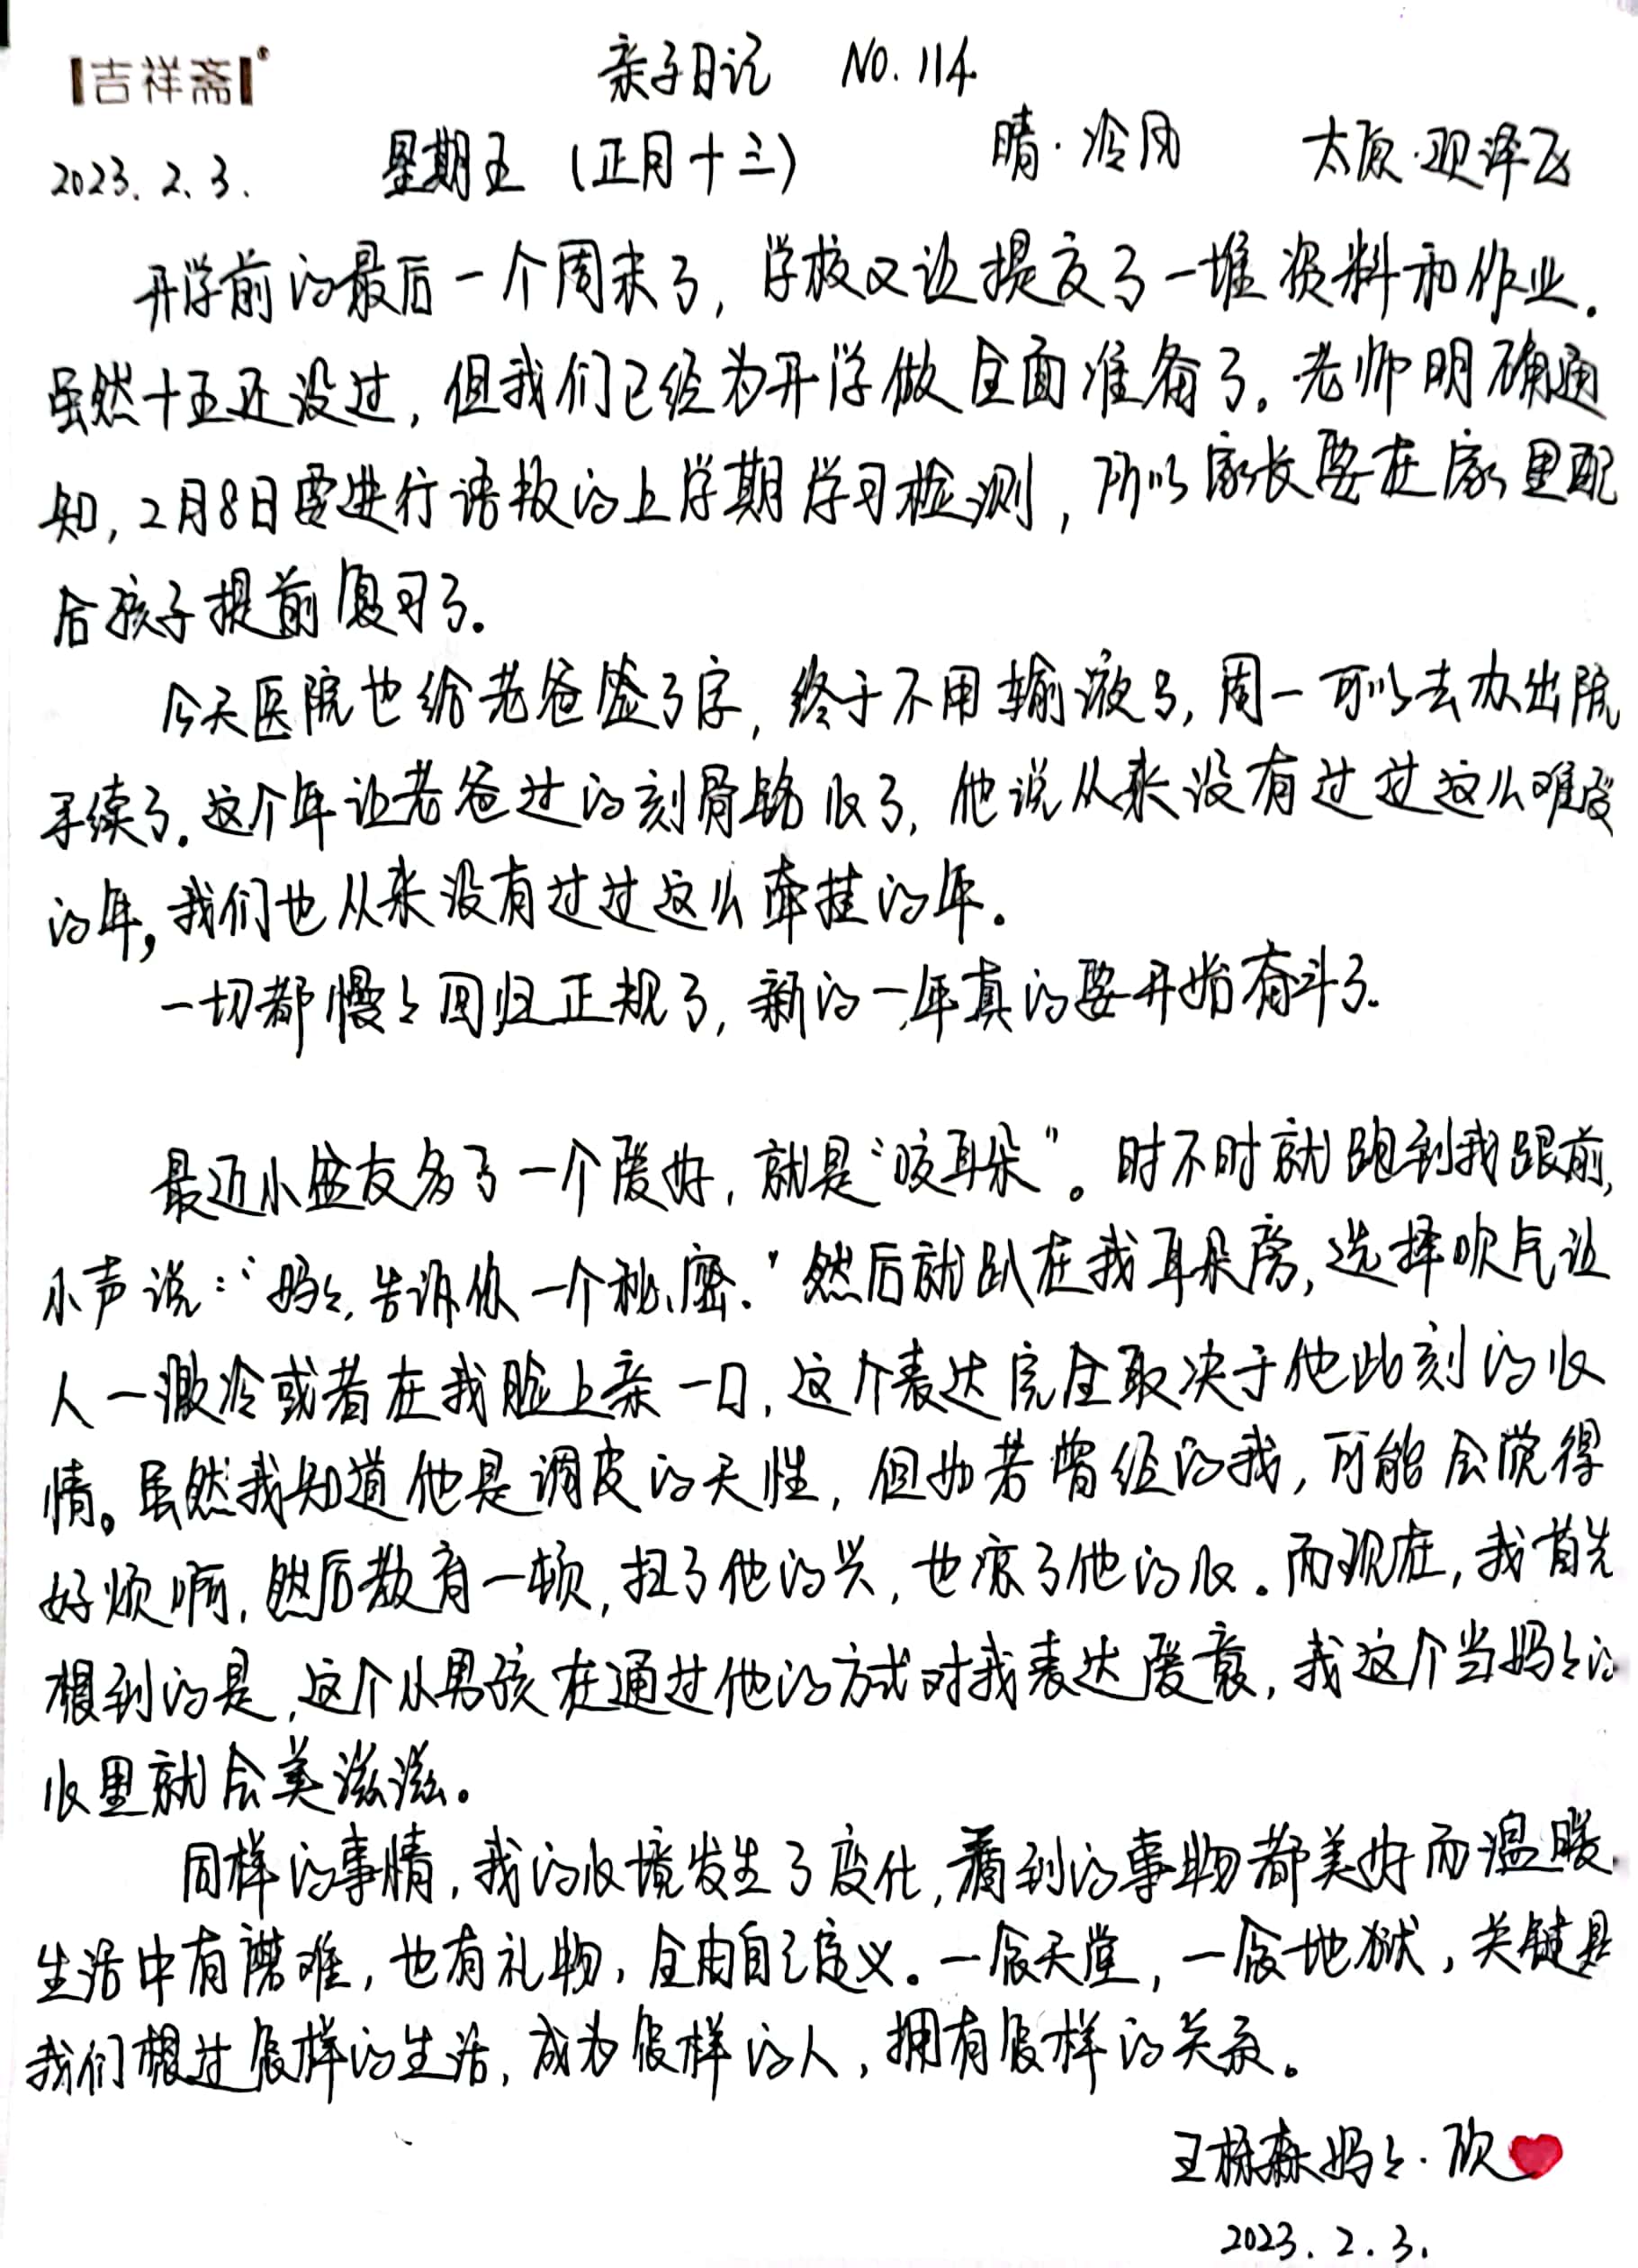 吉祥斋®
亲子日记 NO.114.
2023.2.3. 星期五 (正月十三) 晴·冷风 太原·观泽飞
开学前的最后一个周末了,学校又让提交了一堆资料和作业.
虽然十五还没过,但我们已经为开学做全面准备了。老师明确通
知,2月8日要进行语数的上学期学习检测,所以家长要在家里配
合孩子提前复习了.
今天医院也给老爸签了字,终于不用输液了,周一可以去办出院
手续了.这个年让老爸过的刻骨铭心了,他说从来没有过过这么难受
的年,我们也从来没有过过这么牵挂的年.
一切都慢々回归正规了,新的一年真的要开始奋斗了.
最近小盆友多了一个爱好,就是“咬耳朵”。时不时就跑到我跟前,
小声说:“妈々,告诉你一个秘密.”然后就趴在我耳朵旁,选择吹气让
人一激冷或者在我脸上亲一口,这个表达完全取决于他此刻的心
情。虽然我知道他是调皮的天性,但如若曾经的我,可能会觉得
好烦啊,然后教育一顿,扫了他的兴,也凉了他的心.而现在,我首先
想到的是,这个小男孩在通过他的方式对我表达爱意,我这个当妈々的
心里就会美滋滋。
同样的事情,我的心境发生了变化,看到的事物都美好而温暖.
生活中有磨难,也有礼物,全由自己定义。一念天堂,一念地狱,关键是
我们想过怎样的生活,成为怎样的人,拥有怎样的关系。
王栋森妈々·欣
2023.2.3.